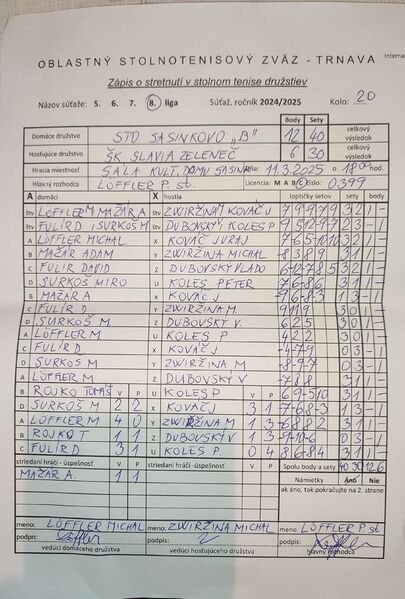 OBLASTNÝ STOLNOTENISOVÝ ZVÄZ - TRNAVA
Interna
Zápis o stretnutí v stolnom tenise družstiev
Názov súťaže: 5. 6. 7. 8. liga Súťaž. ročník 2024/2025 Kolo: 20
Body Sety
Domáce družstvo STO SASINKOVO "B" 12 40 celkový výsledok
Hosťujúce družstvo ŠK SLAVIA ZELENEČ 6 30 celkový výsledok
Hracia miestnosť SÁLA KULT. DOMU SASINK Dňa: 11.3.2025 o 18 hod
Hlavný rozhodca LÖFFLER P. st. Licencia: M A B C číslo: 0399
A domáci X hostia loptičky setov sety body
štv LÖFFLER M MAŽÁR A štv ZWIRŽINA M KOVÁČ J
štv FULÍR D SURKOŠ M štv DUBOVSKÝ KOLES P
A LÖFFLER MICHAL X KOVÁČ JURAJ
B MAŽÁR ADAM Y ZWIRŽINA MICHAL
C FULÍR DAVID Z DUBOVSKÝ VLADO
D SURKOŠ MIRO U KOLES PETER
B MAŽÁR A X KOVÁČ J
C FULÍR D Y ZWIRŽINA M
D SURKOŠ M Z DUBOVSKÝ V. 625 30 1-
A LÖFFLER M U KOLES P 422 30 1-
C FULÍR D X KOVÁČ J -4-7-9 03 -1
D SURKOŠ M Y ZWIRŽINA M -8-9-7 03 -1
A LÖFFLER M Z DUBOVSKÝ V
B ROJKO TOMÁŠ V P U KOLES P V P
D SURKOŠ M 2 2 X KOVÁČ J 3 1
A LÖFFLER M 4 0 Y ZWIRŽINA M 1 3
B ROJKO T 1 1 Z DUBOVSKÝ V 1 3
C FULÍR D 3 1 U KOLES P. 0 4
striedaní hráči - úspešnosť V P striedaní hráči - úspešnosť V P Spolu body a sety 40 30 12 6
MAŽÁR A. 1 1 Námietky Áno Nie
ak áno, tak pokračujte na 2. strane
meno: LÖFFLER MICHAL meno: ZWIRŽINA MICHAL meno: LÖFFLER P st
podpis: podpis: podpis:
vedúci domáceho družstva vedúci hosťujúceho družstva hlavný rozhodca